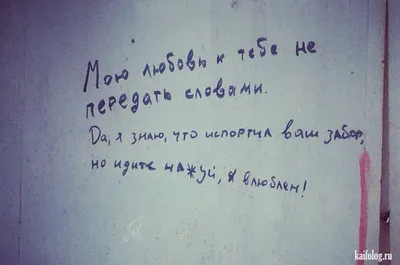 Мою любовь к тебе не
передать словами.
Да, я знаю, что испортил ваш забор,
но идите нахуй, я влюблен!
kaifolog.ru